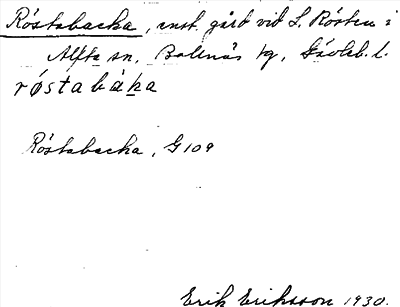 Röstabacka, enst. gård vid L. Rösten i
Alfta sn, Bollnäs tg, Gävleb. l.
røstabáka
Röstabacka, G 109
Erik Eriksson 1930.